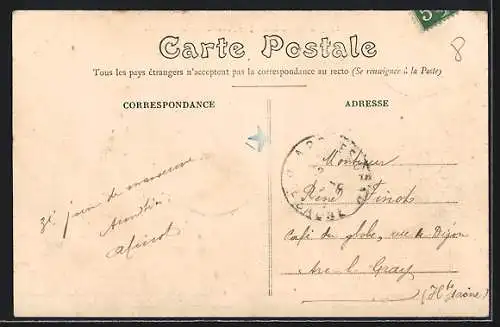 5
8
Carte Postale
Tous les pays étrangers n'acceptent pas la correspondance au recto (Se renseigner à la Poste)
CORRESPONDANCE
ADRESSE
Monsieur
René Vinot
Café du globe, rue de Dijon
Arc-l-Gray
(Hte Saône)
jour de manoeuvre